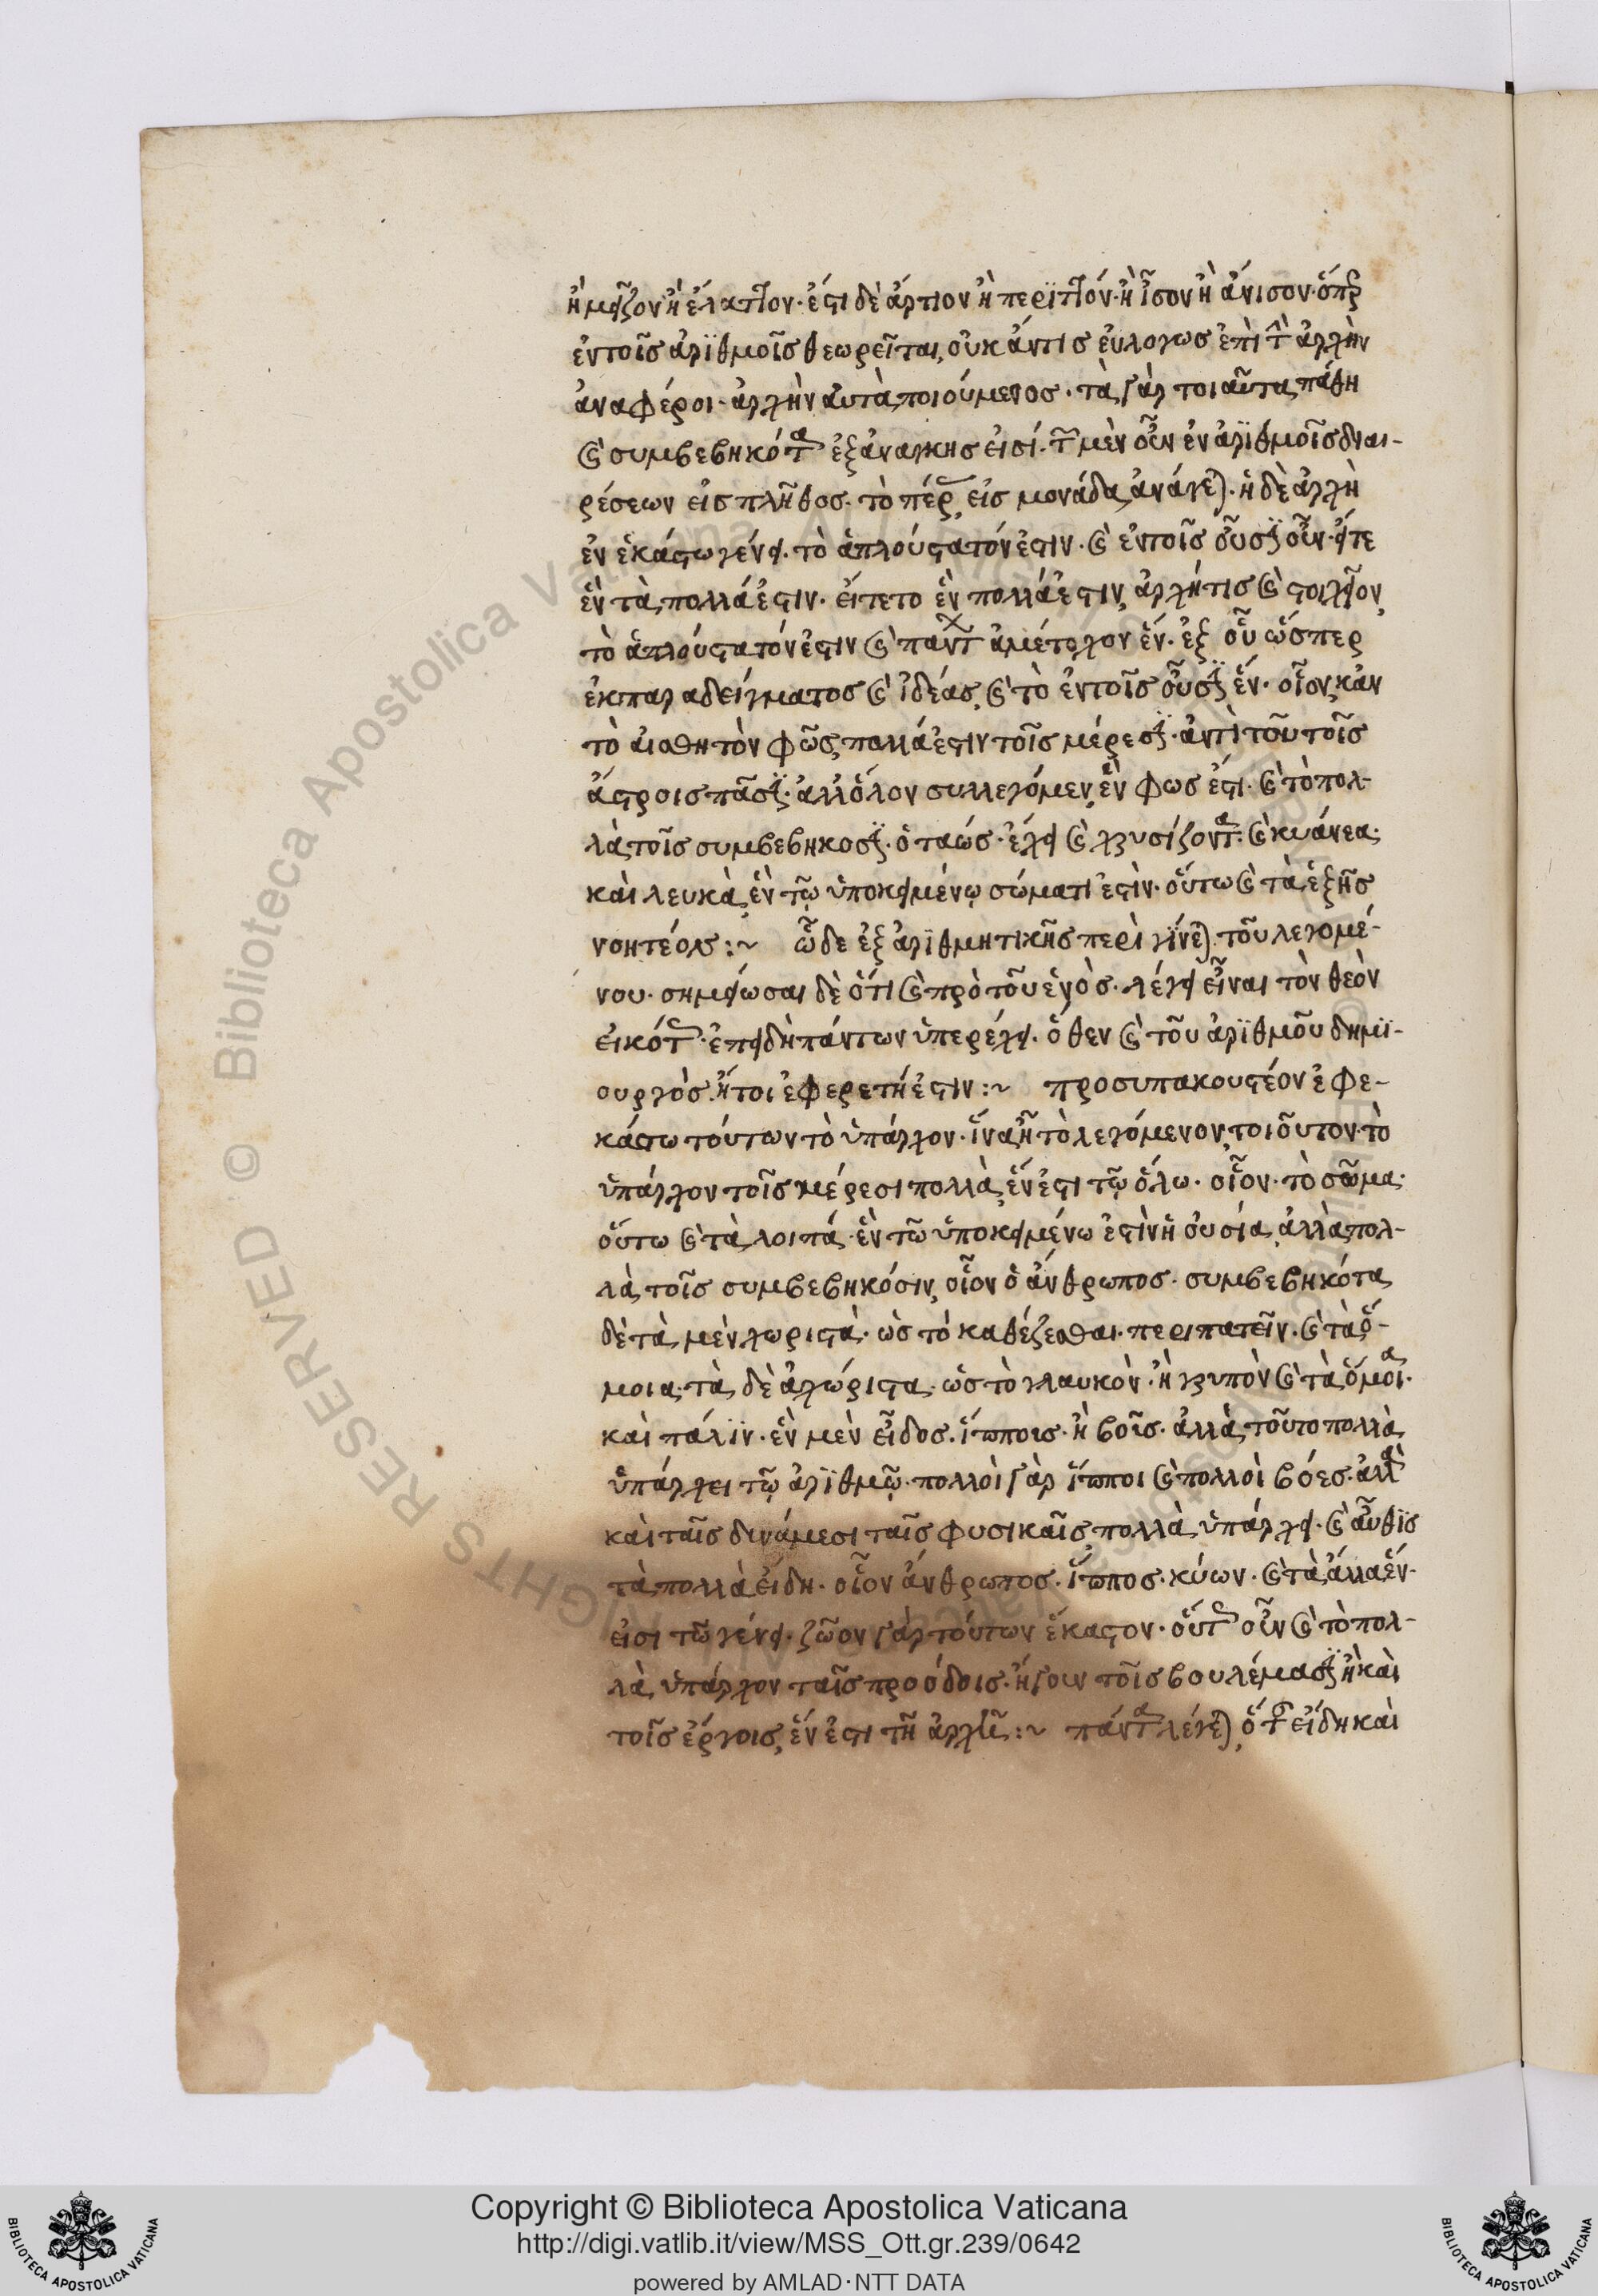 ἢ μεῖζον ἢ ἔλαττον· ἔστι δὲ ἄρτιον ἢ περϊττόν· ἢ ἶσον ἢ ἄνισον· ὅπερ
ἐν τοῖς ἀρϊθμοῖς θεωρεῖται, οὐκ ἄν τις εὐλόγως ἐπὶ τὴν ἀρχὴν
ἀναφέροι· ἀρχὴν αὐτὰ ποιούμενος· τὰ γὰρ τοιαῦτα πάθη
καὶ συμβεβηκότα ἐξ ἀνάγκης εἰσί· τῶν μὲν οὖν ἐν ἀρϊθμοῖς διαι-
ρέσεων εἰς πλῆθος· τὸ πέρας εἰς μονάδα ἀνάγεται· ἡ δὲ ἀρχὴ
ἐν ἑκάστω γένει· τὸ ἁπλούστατόν ἐστιν· καὶ ἐν τοῖς οὖσϊν οὖν· εἴτε
ἓν τὰ πολλά ἐστιν· εἴτε τὸ ἓν πολλά ἐστιν, ἀρχή τις καὶ στοιχεῖον
τὸ ἁπλούστατόν ἐστιν καὶ πανταχῆ ἀμέτοχον ἕν· ἐξ οὗ ὥσπερ
ἐκ παραδείγματος καὶ ἰδέας, καὶ τὸ ἐν τοῖς οὖσϊν ἕν· οἷον, κἂν
τὸ αἰσθητὸν φῶς, πολλά ἐστιν τοῖς μέρεσϊν· ἀντὶ τοῦ τοῖς
ἄστροις πᾶσϊν· ἀλλ' ὅλον συλλεγόμεν, ἓν φως ἐστι· καὶ τὸ πολ-
λὰ τοῖς συμβεβηκοσϊν· ὁ ταώς· ἔχει καὶ χρυσίζοντα· καὶ κυάνεα·
καὶ λευκὰ, ἓν τῷ ὑποκειμένῳ σώματι ἐστὶν· οὕτω καὶ τὰ ἑξῆς
νοητέον :~ ὧδε ἐξ ἀρϊθμητικῆς περὶ γίνεται τοῦ λεγομέ-
νου· σημείωσαι δὲ ὅτι καὶ πρὸ τοῦ ἑνὸς· λέγει εἶναι τὸν θεὸν
εἰκότως· ἐπειδὴ πάντων ὑπερέχει· ὅθεν καὶ τοῦ ἀρϊθμοῦ δημϊ-
ουργὸς· ἤτοι ἐφερετή ἐστιν :~ προσυπακουστέον ἐφ' ἑ-
κάστω τούτων τὸ ὑπάρχον· ἵνα ἦ τὸ λεγόμενον, τοιοῦτον· τὸ
ὑπάρχον τοῖς μέρεσι πολλὰ, ἕν ἐστι τῷ ὅλω· οἷον· τὸ σῶμα·
οὕτω καὶ τὰ λοιπά· ἓν τῶ ὑποκειμένω ἐστὶν ἡ οὐσία, ἀλλὰ πολ-
λὰ τοῖς συμβεβηκόσιν, οἷον ὁ ἄνθρωπος· συμβεβηκότα
δὲ τὰ μὲν χωριστὰ· ὡς τό καθέζεσθαι· περιπατεῖν· καὶ τὰ ὅ-
μοια· τὰ δὲ ἀχώριστα· ὡς τὸ γλαυκὸν· ἢ γρυπὸν καὶ τὰ ὅμοια·
καὶ πάλϊν· ἓν μὲν εἶδος· ἵπποις· ἢ βοῖς· ἀλλὰ τοῦτο πολλὰ
ὑπάρχει τῷ ἀρϊθμῷ· πολλοὶ γὰρ ἵπποι καὶ πολλοὶ βόες· ἀλλὰ
καὶ ταῖς δυνάμεσι ταῖς φυσικαῖς πολλὰ ὑπάρχει· καὶ αὖθϊς
τὰ πολλὰ εἴδη· οἷον ἄνθρωπος· ἵππος· κύων· καὶ τὰ ἄλλα ἕν·
εἰσι τῶ γένει· ζῶον γὰρ τούτων ἕκαστον· οὕτως οὖν καὶ τὸ πολ-
λὰ ὑπάρχον ταῖς προόδοις· ἤγουν τοῖς βουλέμασϊν ἢ καὶ
τοῖς ἔργοις, ἕν ἐστι τῆ ἀρχῆ :~ πάντα λέγεται, ὅτι εἴδη καὶ
Copyright © Biblioteca Apostolica Vaticana
http://digi.vatlib.it/view/MSS_Ott.gr.239/0642
powered by AMLAD·NTT DATA
BIBLIOTECA APOSTOLICA VATICANA
BIBLIOTECA APOSTOLICA VATICANA